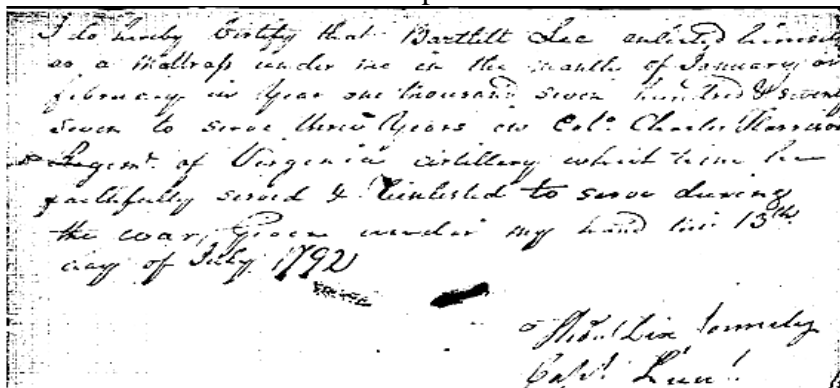 I do hereby Certify that Bartlett Lee enlisted himself
as a Mattross under me in the month of January or
february in Year one thousand seven hundred & seventy
seven to serve three Years in Colo. Charles Harrison
Regemt. of Virgenia artillery which time he
faithfully served & Reinlisted to serve during
the war, Given under my hand this 13th.
day of July 1792
Thos. Dix formerly
Capt. Lieut.